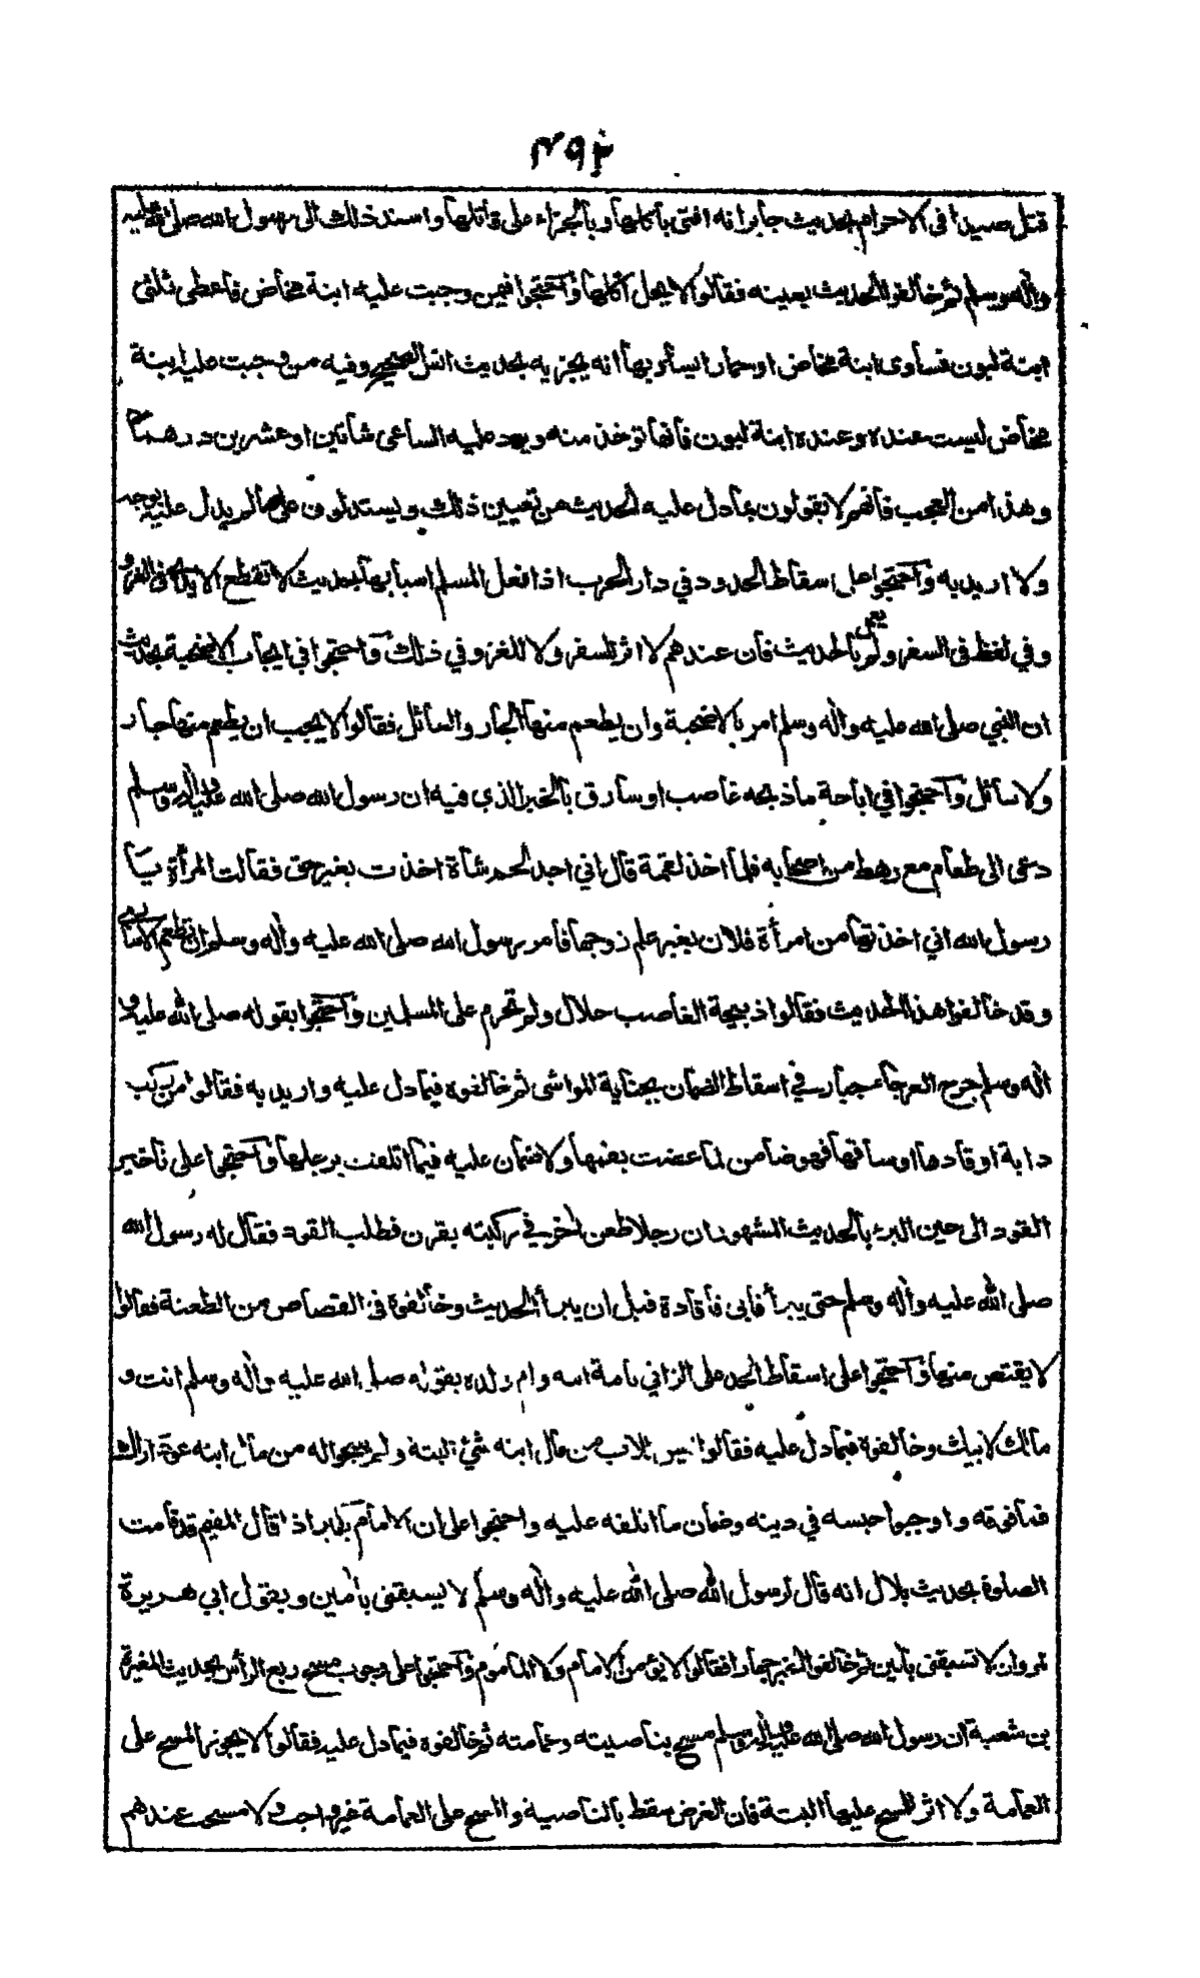 ٢٩٣
قتل صيدا فى الاحرام بحديث جابر انه افتى باكلها وبالجزاء على قاتلها واسند ذلك الى رسول الله صلى الله عليه
واله وسلم ثم خالفوا الحديث بعينه فقالوا لا يحل اكلها واحتجوا فيمن وجبت عليه ابنة مخاض فاعطى ثلثى
ابنة لبون تساوى ابنة مخاض او حمار ايساويها انه يجزيه بحديث انس الصحيح وفيه من وجبت عليه ابنة
مخاض ليست عنده وعنده ابنة لبون فانها توخذ منه ويرد عليه الساعى شاتين او عشرين درهما
وهذا من العجب فانهم لا يقولون بما دل عليه الحديث من تعيين ذلك ويستدلون على ما لم يدل عليه بوجه
ولا اريد به واحتجوا على اسقاط الحدود في دار الحرب اذا فعل المسلم اسبابها بحديث لا تقطع الايدى فى الغزو
وفي لفظ فى السفر ولم يعمل بالحديث فان عندهم لا اثر للسفر ولا للغزو في ذلك واحتجوا في ايجاب الاضحية بحديث
ان النبي صلى الله عليه واله وسلم امر بالاضحية وان يطعم منها الجار والسائل فقالوا لا يجب ان يطعم منها جار
ولا سائل واحتجوا في اباحة ما ذبحه غاصب او سارق بالخبر الذى فيه ان رسول الله صلى الله عليه واله وسلم
دعى الى طعام مع رهط من اصحابه فلما اخذ لقمة قال اني اجد لحم شاة اخذت بغير حق فقالت المرأة يا
رسول الله اني اخذتها من امرأة فلان بغير علم زوجها فامر رسول الله صلى الله عليه واله وسلم ان تطعم الاسارى
وقد خالفوا هذا الحديث فقالوا ذبيحة الغاصب حلال ولم تحرم على المسلمين واحتجوا بقوله صلى الله عليه و
اله وسلم جرح العجماء جبار في اسقاط الضمان بجناية المواشى ثم خالفوه فيما دل عليه واريد به فقالوا من ركب
دابة او قادها او ساقها فهو ضامن لما عضت بفمها ولا ضمان عليه فيما اتلفت برجلها واحتجوا على تاخير
القود الى حين البرء بالحديث المشهور ان رجلا طعن اخر في ركبته بقرن فطلب القود فقال له رسول الله
صلى الله عليه واله وسلم حتى يبرأ فابى فاقاده قبل ان يبرأ الحديث وخالفوه في القصاص من الطعنة فقالوا
لا يقتص منها واحتجوا على اسقاط الحد على الزاني بامة ابنه وام ولده بقوله صلى الله عليه واله وسلم انت و
مالك لابيك وخالفوه فيما دل عليه فقالوا ليس للاب من مال ابنه شئ البتة ولم يبيحوا له من مال ابنه عود اراك
فما فوقه واوجبوا حبسه في دينه وضمان ما اتلفه عليه واحتجوا على ان الامام يكبر اذا قال المقيم قد قامت
الصلوة بحديث بلال انه قال لرسول الله صلى الله عليه واله وسلم لا تسبقنى بامين وبقول ابي هريرة
لمروان لا تسبقنى بامين ثم خالفوا الخبر جهارا فقالوا لا يؤمن الامام ولا الماموم واحتجوا على وجوب مسح ربع الراس بحديث المغيرة
بن شعبة ان رسول الله صلى الله عليه واله وسلم مسح بناصيته وعمامته ثم خالفوه فيما دل عليه فقالوا لا يجوز المسح على
العمامة ولا اثر للمسح عليها البتة فان الفرض سقط بالناصية والمسح على العمامة غير واجب ولا مستحب عندهم